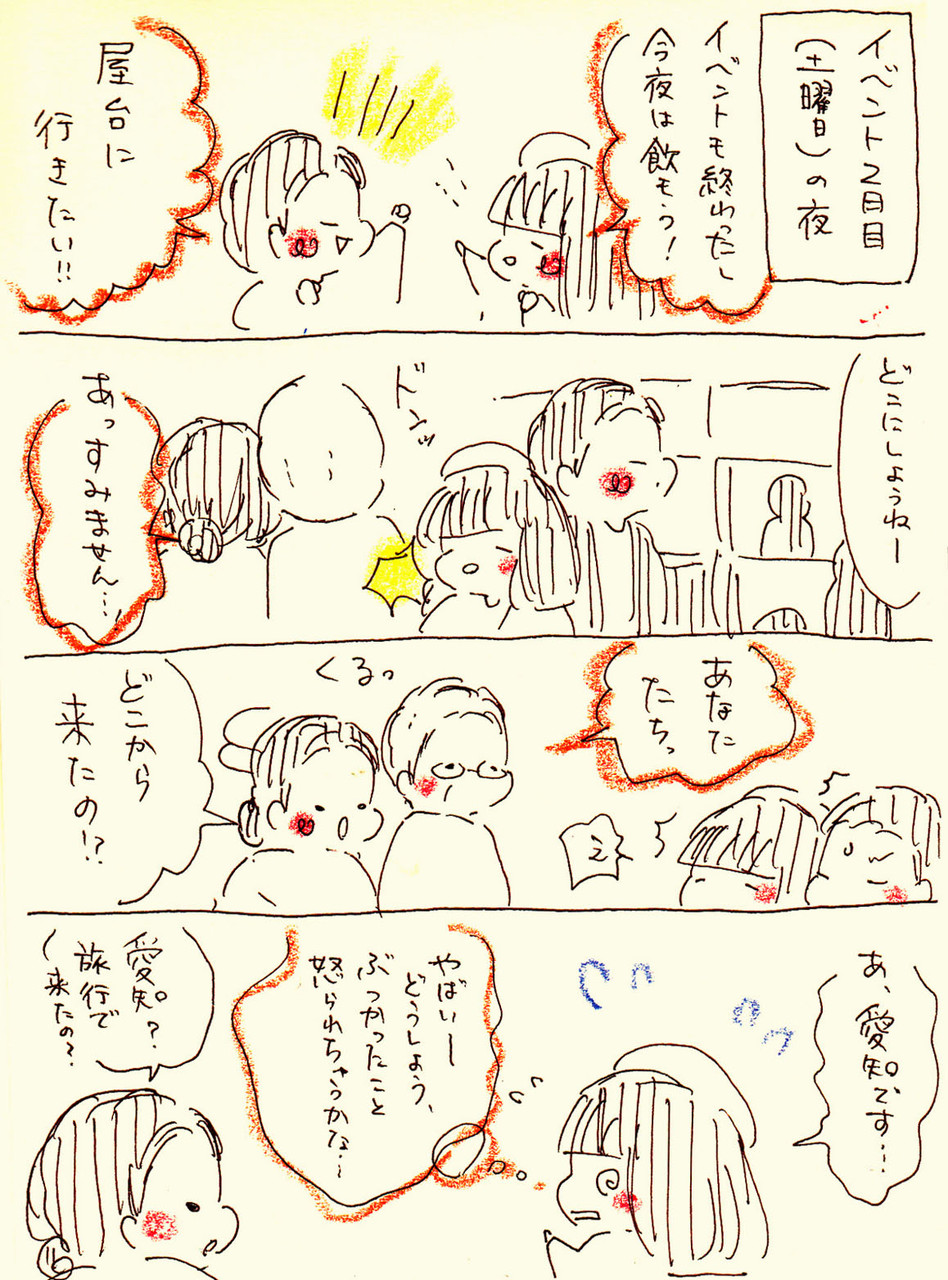 イベント2日目
(土曜日)の夜
イベントも終わったし
今夜は飲もう!
屋台に
行きたい!!
どこにしようねー
ドンッ
あっすみません…
あなた
たちっ
くるっ
どこから
来たの!?
あ、愛知です…
やばいー
どうしよう、
ぶつかったこと
怒られちゃうかな…
愛知?
旅行で
来たの?